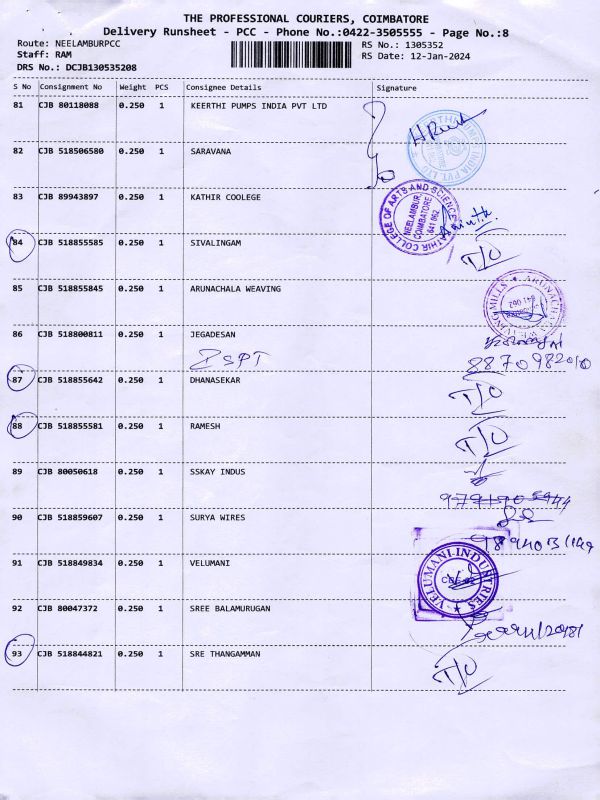 THE PROFESSIONAL COURIERS, COIMBATORE
Delivery Runsheet - PCC - Phone No.:0422-3505555 - Page No.:8
Route: NEELAMBURPCC
RS No.: 1305352
Staff: RAM
RS Date: 12-Jan-2024
DRS No.: DCJB130535208
S No Consignment No Weight PCS Consignee Details Signature
81 CJB 80118088 0.250 1 KEERTHI PUMPS INDIA PVT LTD
82 CJB 518506580 0.250 1 SARAVANA
83 CJB 89943897 0.250 1 KATHIR COOLEGE
KATHIR COLLEGE OF ARTS AND SCIENCE
NEELAMBUR,
COIMBATORE
641 062
84 CJB 518855585 0.250 1 SIVALINGAM T/O
85 CJB 518855845 0.250 1 ARUNACHALA WEAVING
ARUNACHALA WEAVING MILLS
641 062
86 CJB 518800811 0.250 1 JEGADESAN
ZSPT
8870982010
87 CJB 518855642 0.250 1 DHANASEKAR T/O
88 CJB 518855581 0.250 1 RAMESH T/O
89 CJB 80050618 0.250 1 SSKAY INDUS
90 CJB 518859607 0.250 1 SURYA WIRES
91 CJB 518849834 0.250 1 VELUMANI
VELUMANI INDUSTRIES
92 CJB 80047372 0.250 1 SREE BALAMURUGAN
93 CJB 518844821 0.250 1 SRE THANGAMMAN T/O